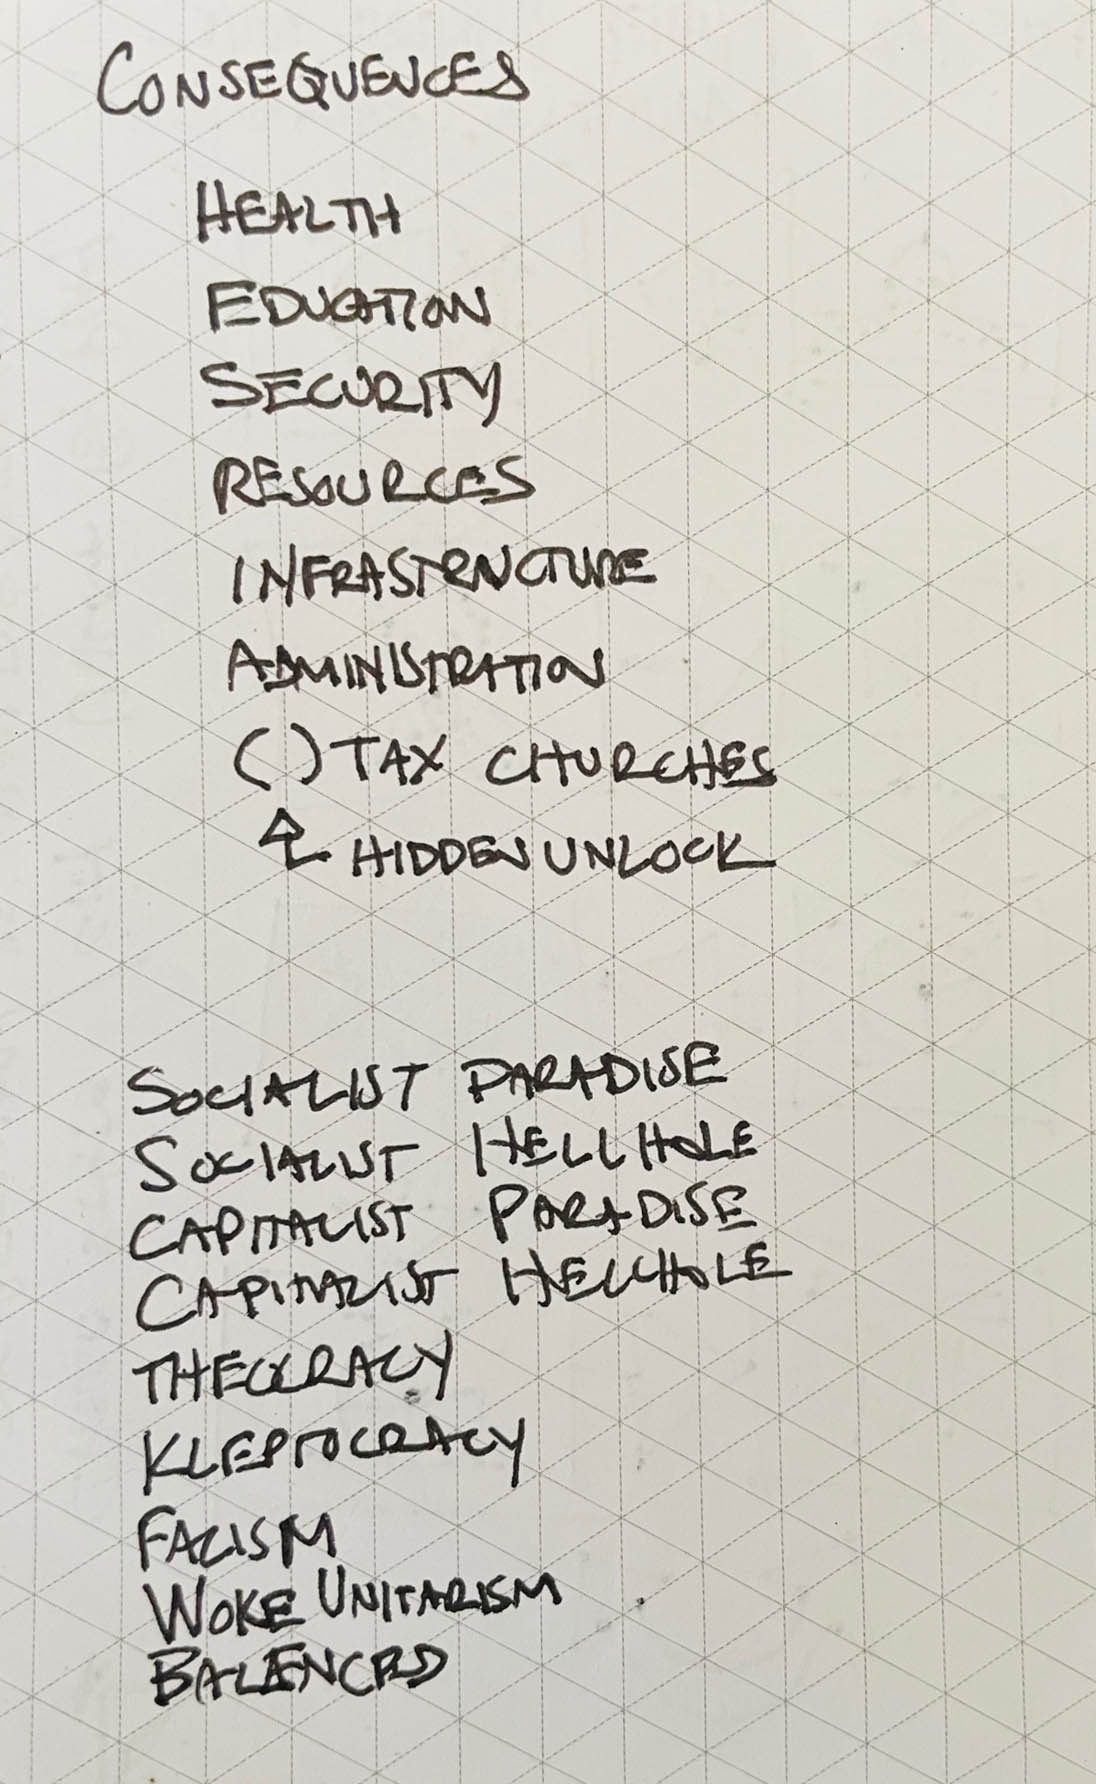 CONSEQUENCES
HEALTH
EDUCATION
SECURITY
RESOURCES
INFRASTRUCTURE
ADMINISTRATION
( ) TAX CHURCHES
↑ HIDDEN UNLOCK
SOCIALIST PARADISE
SOCIALIST HELLHOLE
CAPITALIST PARADISE
CAPITALIST HELLHOLE
THEOCRACY
KLEPTOCRACY
FACISM
WOKE UNITARISM
BALANCED